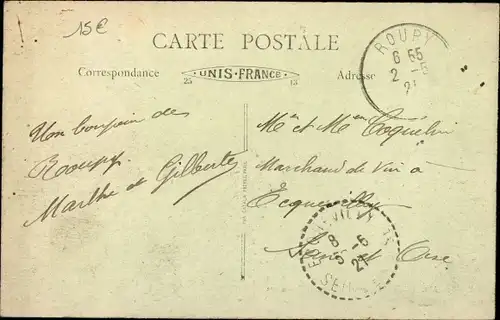 15€
CARTE POSTALE
Correspondance
UNIS-FRANCE
25
13
Adresse
ROUPY
6 55
2 -5
21
Un bonjour de
Rooupy
Marthe et Gilberte
Mr et Mme Coquelin
Marchand de Vin à
Ecquevilly
Seine et Oise
ECQUEVILLY
8
3 -5
21
SEINE